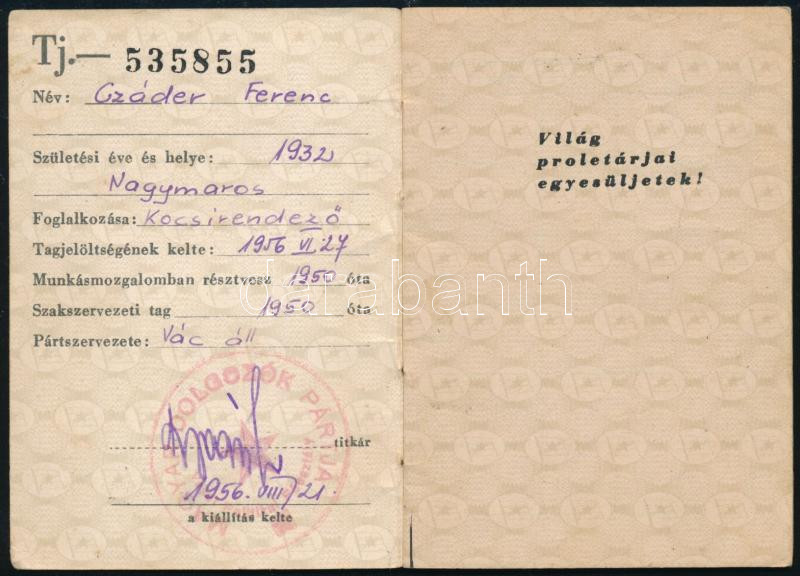 Tj.— 535855
Név: Czáder Ferenc
Születési éve és helye: 1932
Nagymaros
Foglalkozása: Kocsirendező
Tagjelöltségének kelte: 1956 VI. 27
Munkásmozgalomban résztvesz 1950 óta
Szakszervezeti tag 1950 óta
Pártszervezete: Vác áll
MAGYAR DOLGOZÓK PÁRTJA
titkár
1956. VIII/21.
a kiállítás kelte
Világ
proletárjai
egyesüljetek!
darabanth